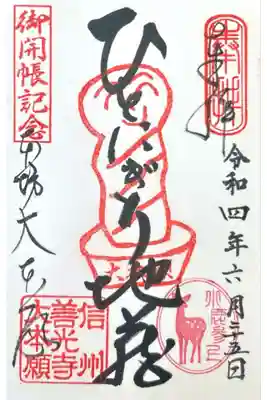 奉拝
令和四年六月二五日
ひとにぎり地蔵
御開帳記念
大本願
信州
善光寺
大本願